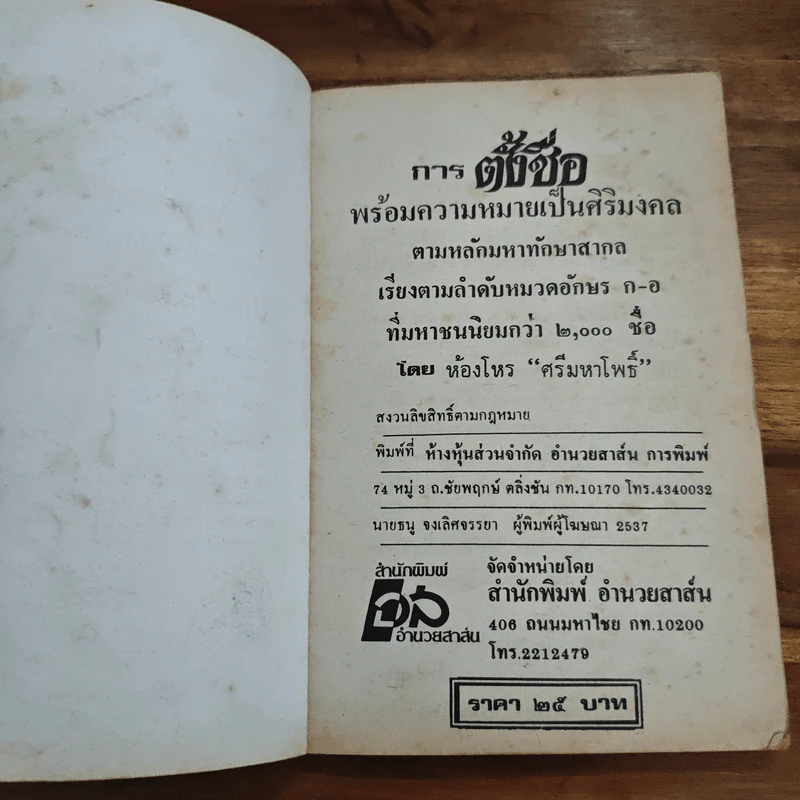 การ ตั้งชื่อ
พร้อมความหมายเป็นศิริมงคล
ตามหลักมหาทักษาสากล
เรียงตามลำดับหมวดอักษร ก-อ
ที่มหาชนนิยมกว่า ๒,๐๐๐ ชื่อ
โดย ห้องโหร “ศรีมหาโพธิ์”
สงวนลิขสิทธิ์ตามกฎหมาย
พิมพ์ที่ ห้างหุ้นส่วนจำกัด อำนวยสาส์น การพิมพ์
74 หมู่ 3 ถ.ชัยพฤกษ์ ตลิ่งชัน กท.10170 โทร.4340032
นายธนู จงเลิศจรรยา ผู้พิมพ์ผู้โฆษณา 2537
สำนักพิมพ์
อำนวยสาส์น
จัดจำหน่ายโดย
สำนักพิมพ์ อำนวยสาส์น
406 ถนนมหาไชย กท.10200
โทร.2212479
ราคา ๒๕ บาท